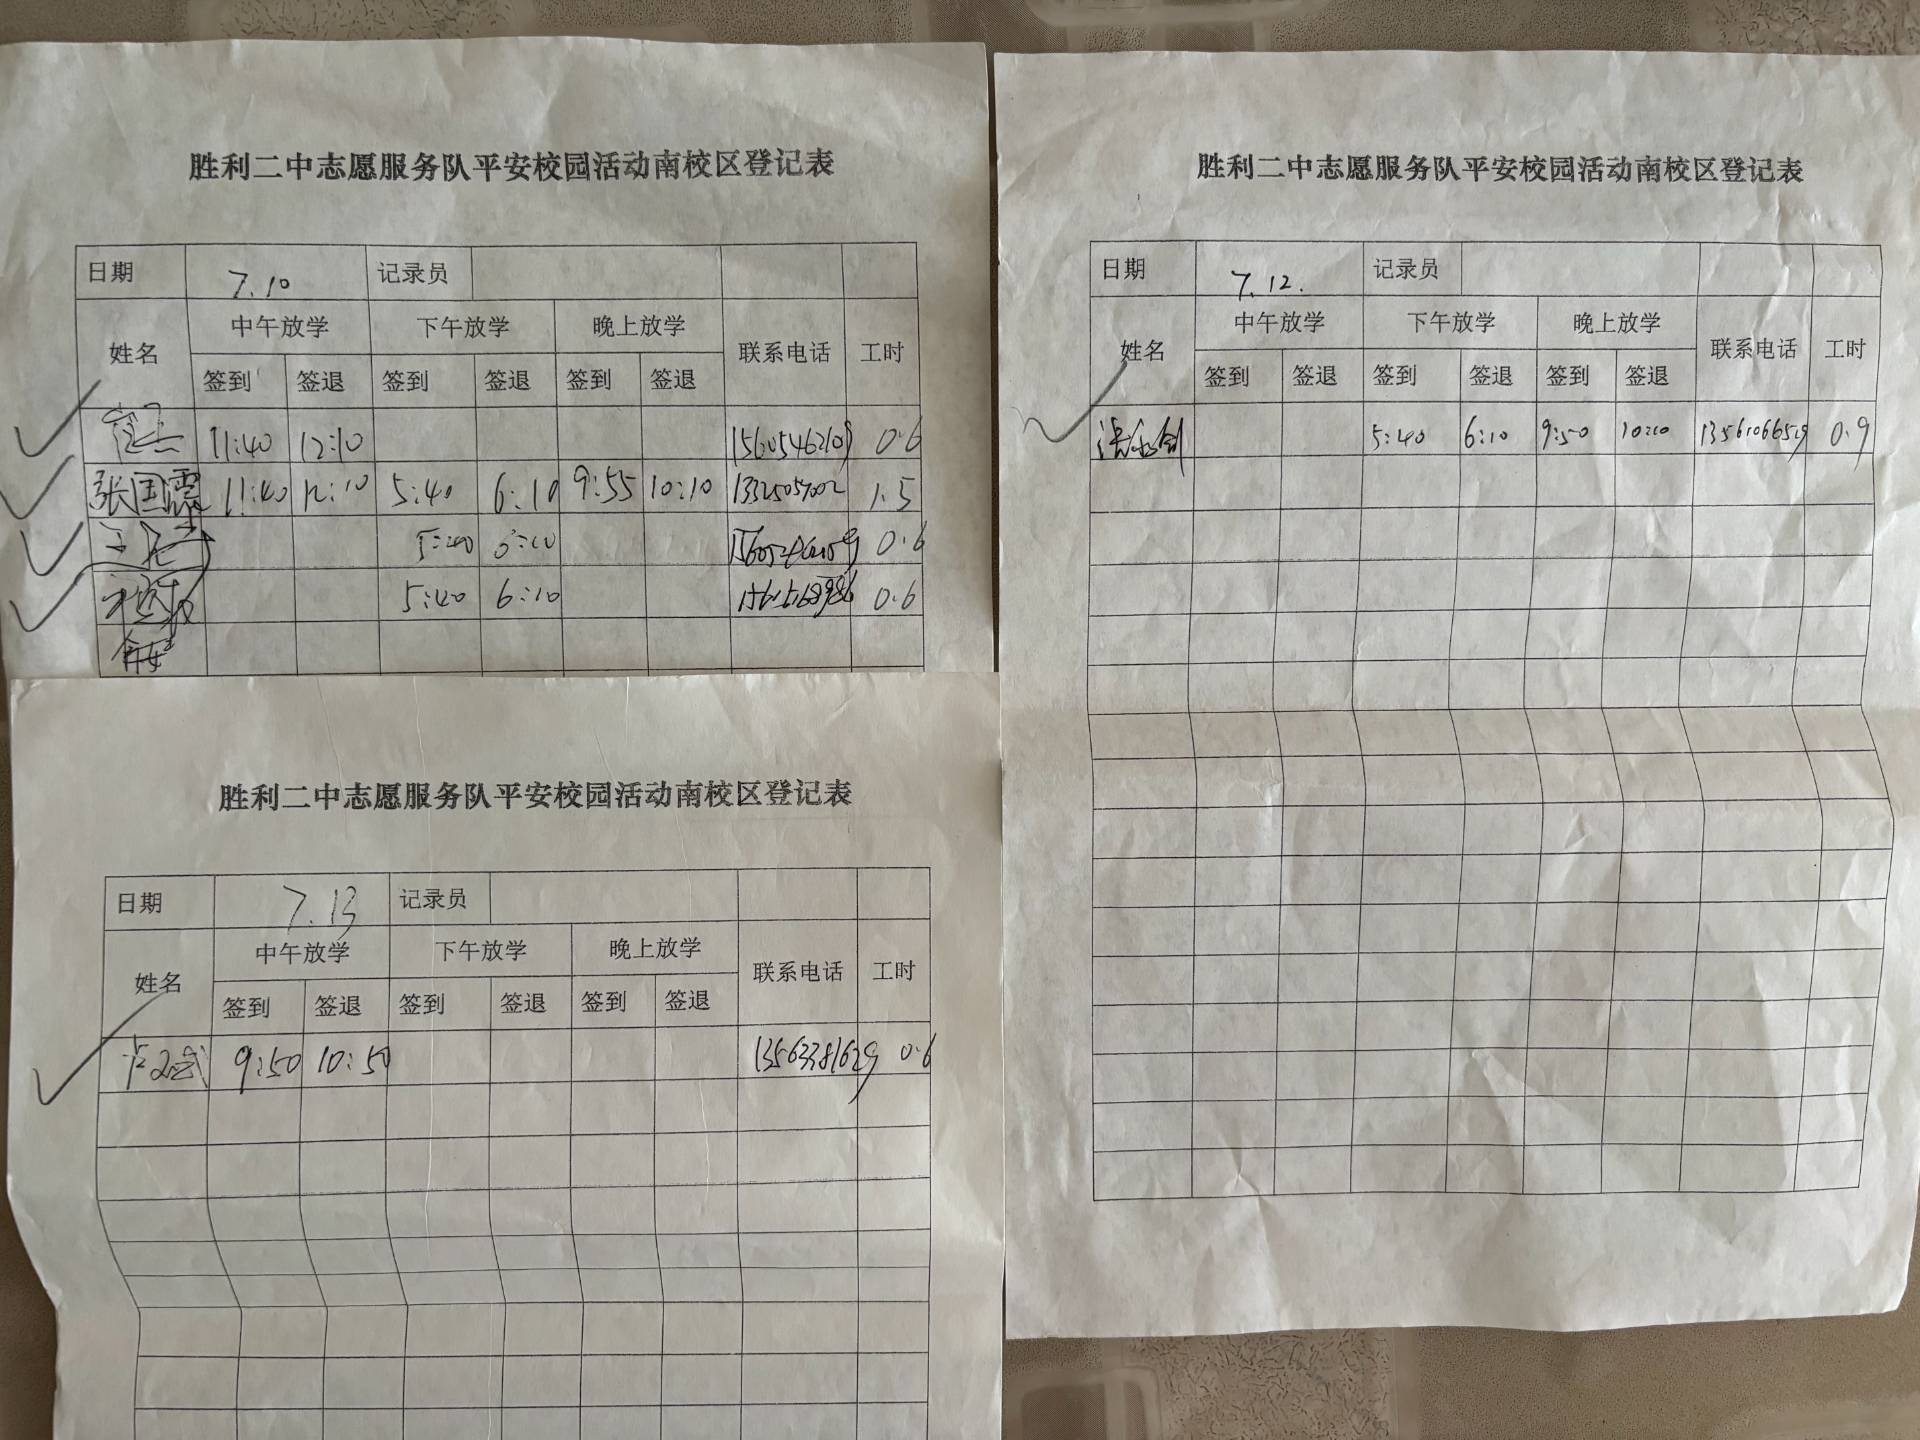 胜利二中志愿服务队平安校园活动南校区登记表
日期 7.10 记录员
姓名 中午放学 下午放学 晚上放学 联系电话 工时
签到 签退 签到 签退 签到 签退
11:40 12:10 15605462109 0.6
张国震 11:40 12:10 5:40 6:10 9:55 10:10 13325057002 1.5
5:40 6:10 0.6
5:40 6:10 0.6
胜利二中志愿服务队平安校园活动南校区登记表
日期 7.13 记录员
姓名 中午放学 下午放学 晚上放学 联系电话 工时
签到 签退 签到 签退 签到 签退
9:50 10:50 13563381629 0.6
胜利二中志愿服务队平安校园活动南校区登记表
日期 7.12. 记录员
姓名 中午放学 下午放学 晚上放学 联系电话 工时
签到 签退 签到 签退 签到 签退
5:40 6:10 9:50 10:10 13561066529 0.9